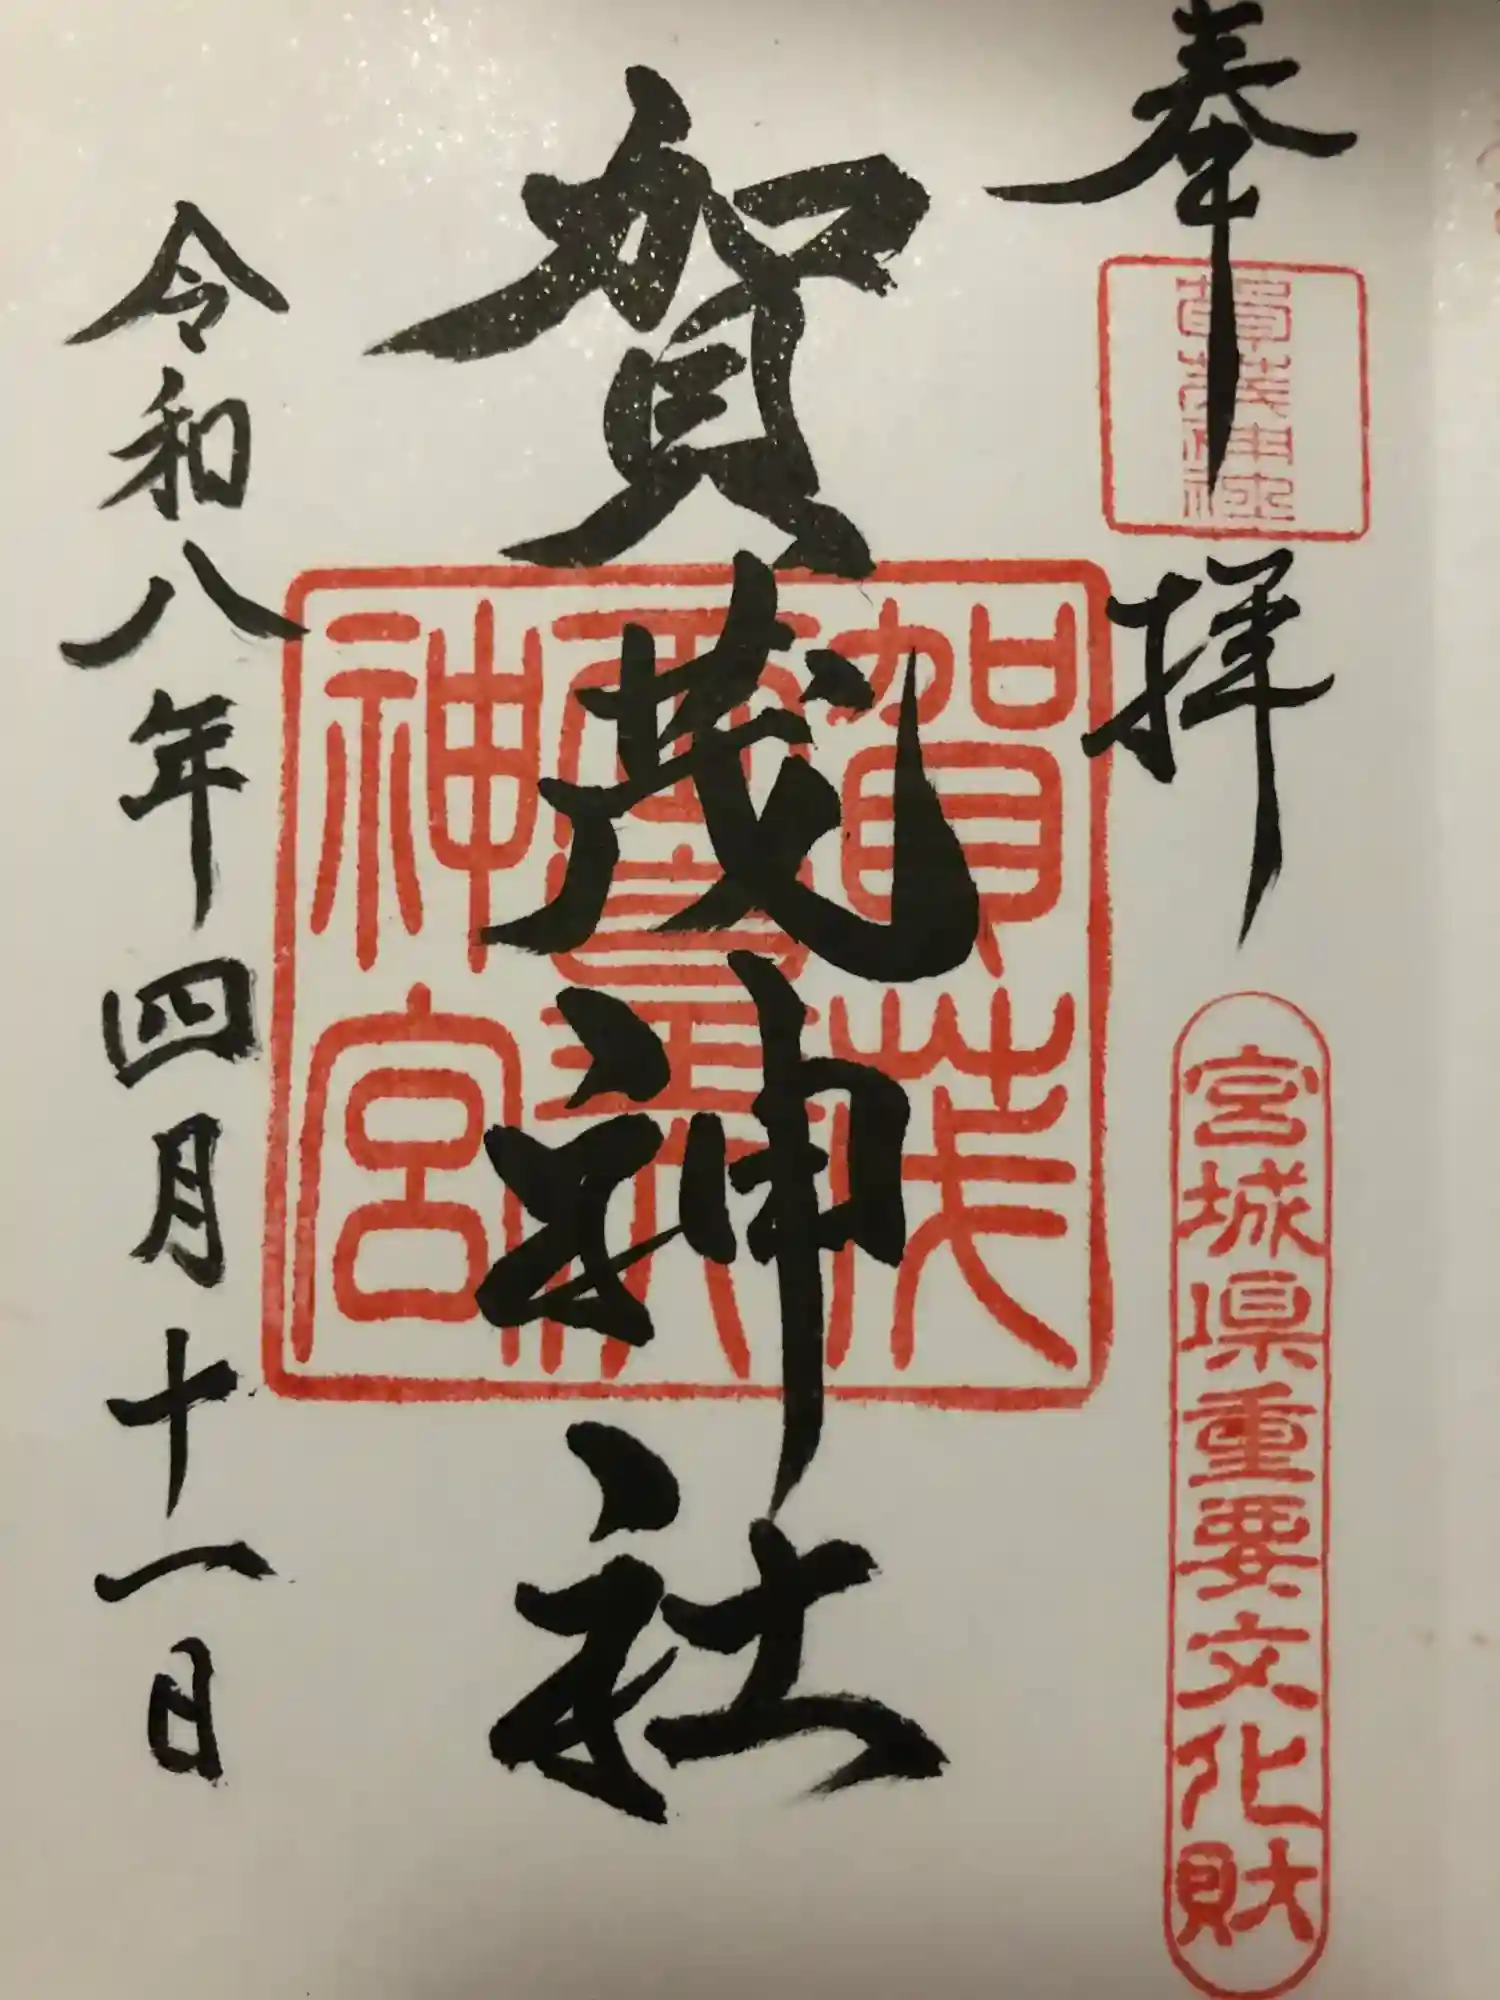 奉拝
賀茂神社
宮城県重要文化財
賀茂神社
賀茂
神宮
令和八年四月十一日